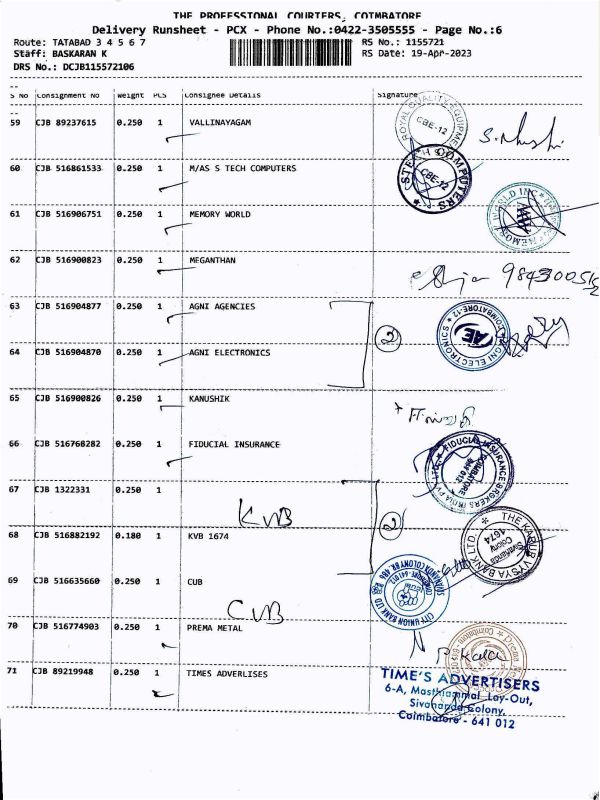 THE PROFESSIONAL COURIERS, COIMBATORE
Delivery Runsheet - PCX - Phone No.:0422-3505555 - Page No.:6
Route: TATABAD 3 4 5 6 7 RS No.: 1155721
Staff: BASKARAN K RS Date: 19-Apr-2023
DRS No.: DCJB115572106
S No Consignment No Weight PCS Consignee Details Signature
59 CJB 89237615 0.250 1 VALLINAYAGAM
ROYAL QUALITY EQUIPMENT CBE-12
60 CJB 516861533 0.250 1 M/AS S TECH COMPUTERS
S TECH COMPUTERS CBE-12
61 CJB 516906751 0.250 1 MEMORY WORLD
62 CJB 516900823 0.250 1 MEGANTHAN
63 CJB 516904877 0.250 1 AGNI AGENCIES
2
AGNI ELECTRONICS COIMBATORE-12 AE
64 CJB 516904870 0.250 1 AGNI ELECTRONICS
65 CJB 516900826 0.250 1 KANUSHIK
66 CJB 516768282 0.250 1 FIDUCIAL INSURANCE
FIDUCIAL INSURANCE BROKERS INDIA PVT LTD COIMBATORE 641 012
67 CJB 1322331 0.250 1
KVB
2
68 CJB 516882192 0.180 1 KVB 1674
THE KARUR VYSYA BANK LTD. Sivananda Colony 1674
69 CJB 516635660 0.250 1 CUB
CUB
CITY UNION BANK LTD SIVANANDA COLONY BR.
70 CJB 516774903 0.250 1 PREMA METAL
71 CJB 89219948 0.250 1 TIMES ADVERLISES
TIME'S ADVERTISERS
6-A, Masthiammal Lay-Out,
Sivananda Colony,
Coimbatore - 641 012